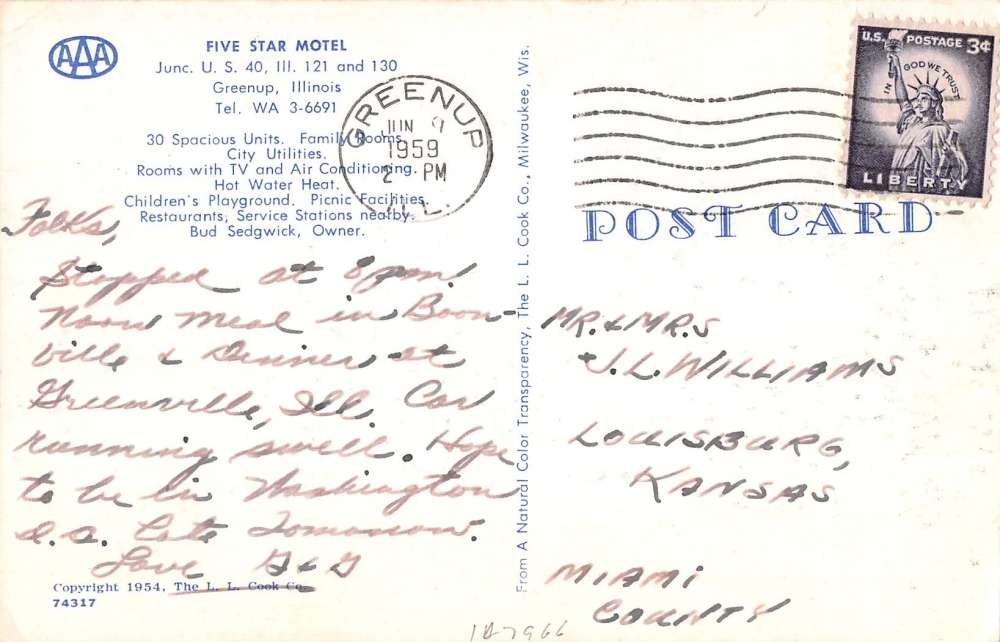 AAA
FIVE STAR MOTEL
Junc. U. S. 40, Ill. 121 and 130
Greenup, Illinois
Tel. WA 3-6691
30 Spacious Units. Family Rooms.
City Utilities.
Rooms with TV and Air Conditioning.
Hot Water Heat.
Children's Playground. Picnic Facilities.
Restaurants, Service Stations nearby.
Bud Sedgwick, Owner.
Folks,
Stopped at 8 pm!
Noon meal in Boon-
ville & Dinner at
Greenville, Ill. Car
running swell. Hope
to be in Washington
D.C. late Tomorrow.
Love
Copyright 1954, The L. L. Cook Co.
74317
From A Natural Color Transparency, The L. L. Cook Co., Milwaukee, Wis.
GREENUP
JUN 9
1959
2 PM
ILL.
U.S. POSTAGE 3¢
IN GOD WE TRUST
LIBERTY
POST CARD
MR. & MRS
J. L. WILLIAMS
LOUISBURG,
KANSAS
MIAMI
COUNTY